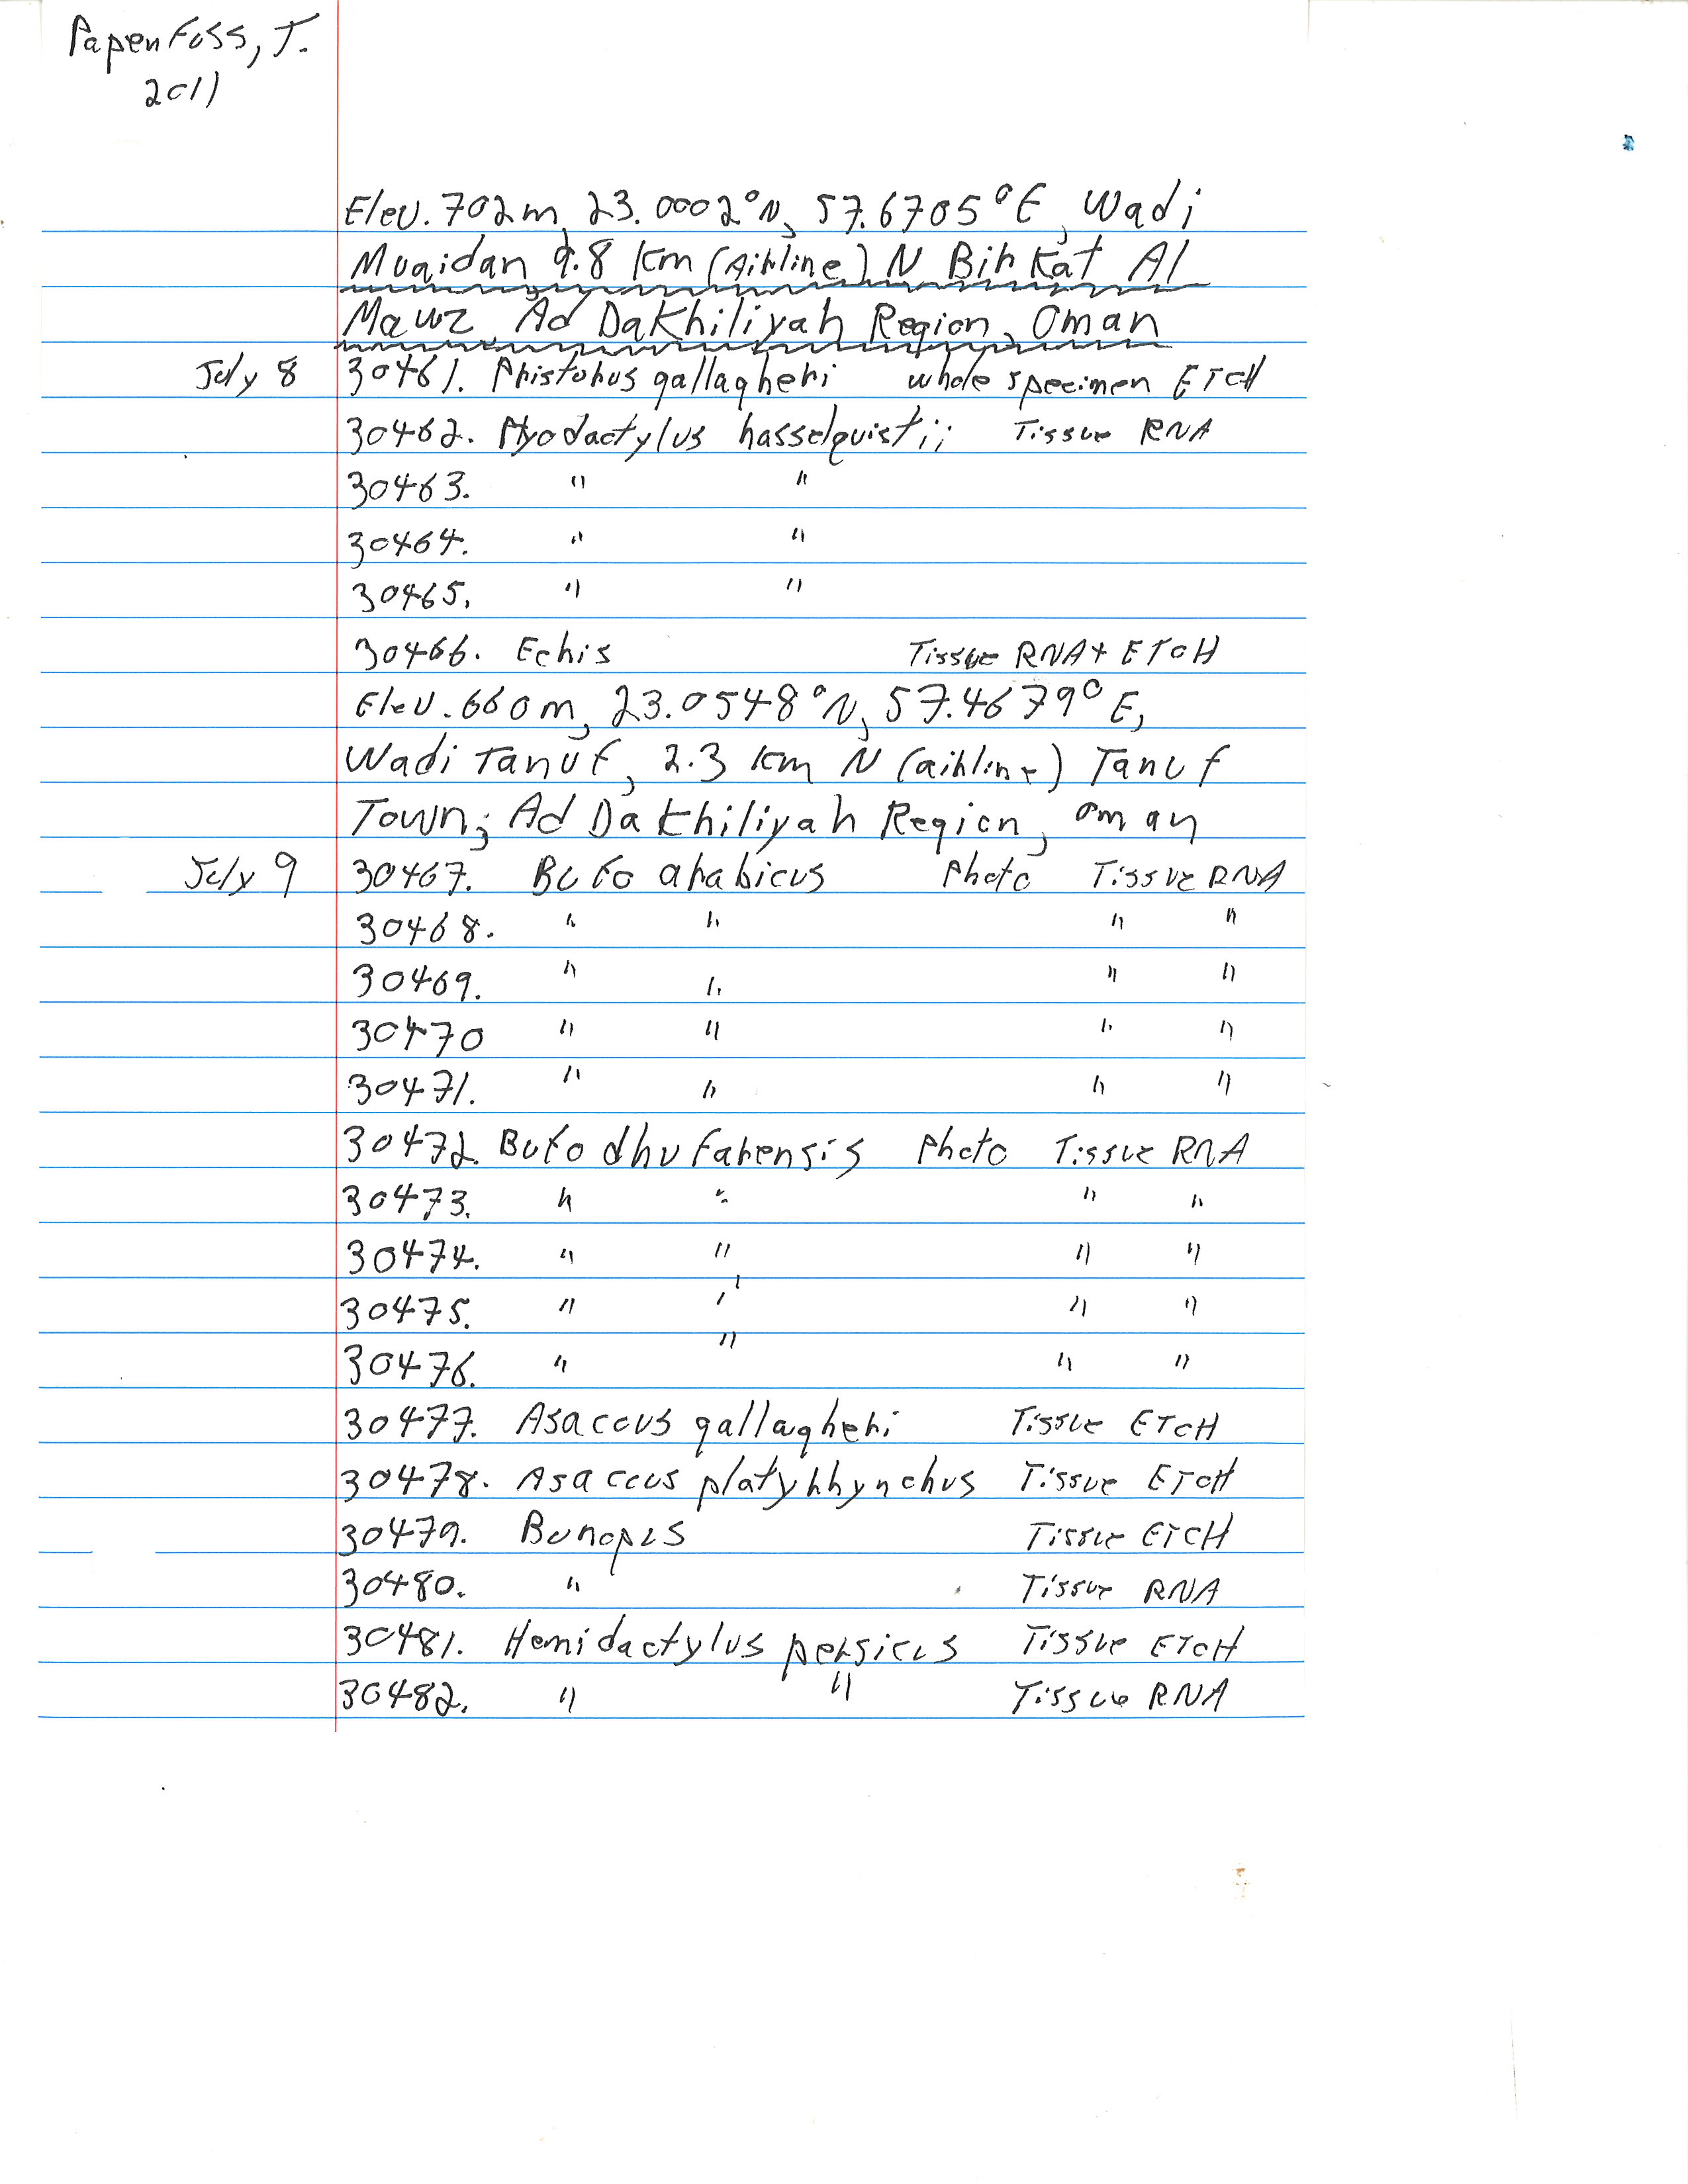 Papenfuss, T.
2011
Elev. 702m, 23.0002°N, 57.6705°E, Wadi
Muaidan 9.8 Km (Airline) N Birkat Al
Mawz, Ad Dakhiliyah Region, Oman
July 8 30461. Pristurus gallagheri whole specimen ETOH
30462. Ptyodactylus hasselquistii Tissue RNA
30463. " "
30464. " "
30465. " "
30466. Echis Tissue RNA + ETOH
Elev. 660m, 23.0548°N, 57.4679°E,
Wadi Tanuf, 2.3 Km N (airline) Tanuf
Town; Ad Dakhiliyah Region, Oman
July 9 30467. Bufo arabicus Photo Tissue RNA
30468. " " " "
30469. " " " "
30470 " " " "
30471. " " " "
30472. Bufo dhufarensis Photo Tissue RNA
30473. " " " "
30474. " " " "
30475. " " " "
30476. " " " "
30477. Asaccus gallagheri Tissue ETOH
30478. Asaccus platyrhynchus Tissue ETOH
30479. Bunopus Tissue ETOH
30480. " Tissue RNA
30481. Hemidactylus persicus Tissue ETOH
30482. " " Tissue RNA